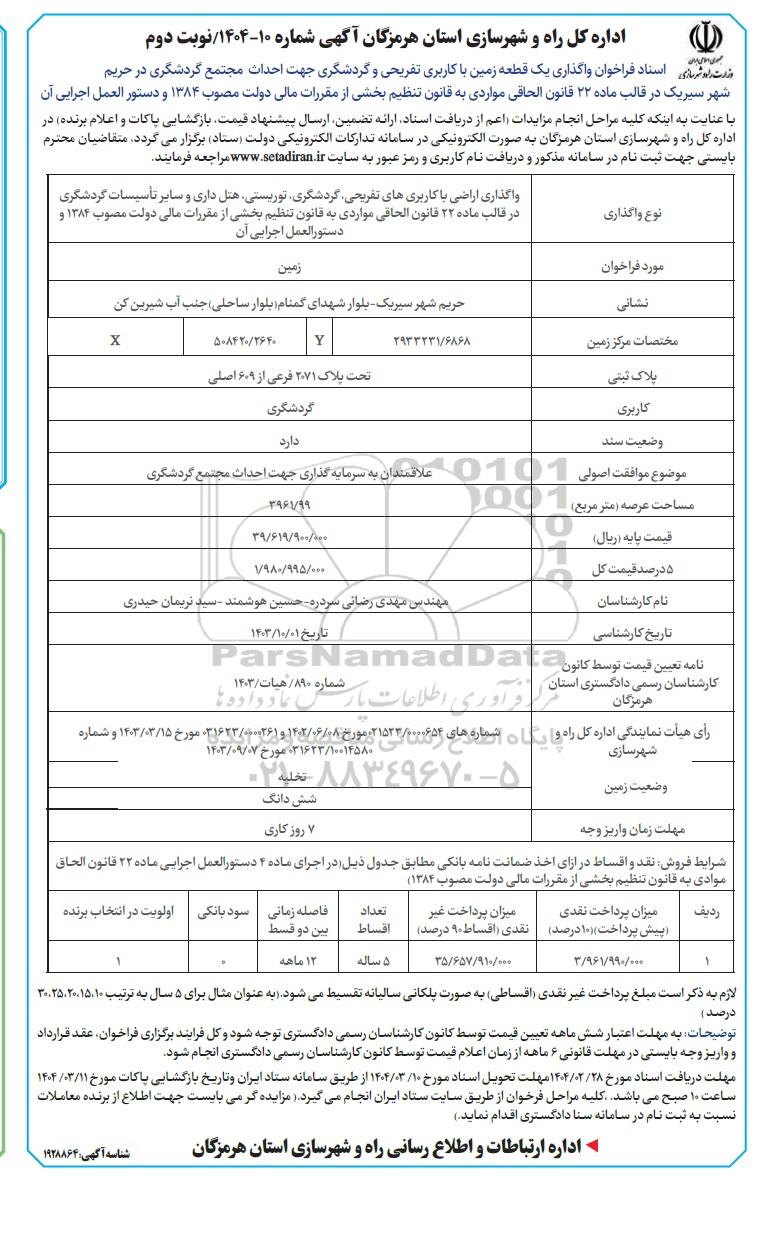 اداره کل راه و شهرسازی استان هرمزگان آگهی شماره ۱۰-۱۴۰۴/نوبت دوم
جمهوری اسلامی ایران
وزارت راه و شهرسازی
اسناد فراخوان واگذاری یک قطعه زمین با کاربری تفریحی و گردشگری جهت احداث مجتمع گردشگری در حریم
شهر سیریک در قالب ماده ۲۲ قانون الحاقی مواردی به قانون تنظیم بخشی از مقررات مالی دولت مصوب ۱۳۸۴ و دستور العمل اجرایی آن
با عنایت به اینکه کلیه مراحل انجام مزایدات (اعم از دریافت اسناد، ارائه تضمین، ارسال پیشنهاد قیمت، بازگشایی پاکات و اعلام برنده) در
اداره کل راه و شهرسازی استان هرمزگان به صورت الکترونیکی در سامانه تدارکات الکترونیکی دولت (ستاد) برگزار می گردد، متقاضیان محترم
بایستی جهت ثبت نام در سامانه مذکور و دریافت نام کاربری و رمز عبور به سایت www.setadiran.ir مراجعه فرمایند.
نوع واگذاری
واگذاری اراضی با کاربری های تفریحی، گردشگری، توریستی، هتل داری و سایر تأسیسات گردشگری
در قالب ماده ۲۲ قانون الحاقی مواردی به قانون تنظیم بخشی از مقررات مالی دولت مصوب ۱۳۸۴ و
دستورالعمل اجرایی آن
مورد فراخوان زمین
نشانی حریم شهر سیریک-بلوار شهدای گمنام(بلوار ساحلی)جنب آب شیرین کن
مختصات مرکز زمین ۲۹۳۳۲۳۱/۶۸۶۸ Y ۵۰۸۴۲۰/۲۶۴۰ X
پلاک ثبتی تحت پلاک ۲۰۷۱ فرعی از ۶۰۹ اصلی
کاربری گردشگری
وضعیت سند دارد
موضوع موافقت اصولی علاقمندان به سرمایه گذاری جهت احداث مجتمع گردشگری
مساحت عرصه (متر مربع) ۳۹۶۱/۹۹
قیمت پایه (ریال) ۳۹/۶۱۹/۹۰۰/۰۰۰
۵درصدقیمت کل ۱/۹۸۰/۹۹۵/۰۰۰
نام کارشناسان مهندس مهدی رضائی سردره-حسین هوشمند -سید نریمان حیدری
تاریخ کارشناسی تاریخ ۱۴۰۳/۱۰/۰۱
نامه تعیین قیمت توسط کانون
کارشناسان رسمی دادگستری استان
هرمزگان
شماره ۸۹۰/ هیات/۱۴۰۳
رأی هیأت نمایندگی اداره کل راه و
شهرسازی
شماره های ۰۲۱۵۲۳/۰۰۰۰۶۵۴ مورخ ۱۴۰۲/۰۶/۰۸ و ۰۳۱۶۲۳/۰۰۰۰۲۶۱ مورخ ۱۴۰۳/۰۳/۱۵ و شماره
۰۳۱۶۲۳/۱۰۰۱۴۵۸۰ مورخ ۱۴۰۳/۰۹/۰۷
وضعیت زمین تخلیه
شش دانگ
مهلت زمان واریز وجه ۷ روز کاری
شرایط فروش: نقد و اقساط در ازای اخذ ضمانت نامه بانکی مطابق جدول ذیل(در اجرای ماده ۴ دستورالعمل اجرایی ماده ۲۲ قانون الحاق
موادی به قانون تنظیم بخشی از مقررات مالی دولت مصوب ۱۳۸۴)
ردیف میزان پرداخت نقدی (پیش پرداخت)(۱۰درصد) میزان پرداخت غیر نقدی (اقساط ۹۰ درصد) تعداد اقساط فاصله زمانی بین دو قسط سود بانکی اولویت در انتخاب برنده
۱ ۳/۹۶۱/۹۹۰/۰۰۰ ۳۵/۶۵۷/۹۱۰/۰۰۰ ۵ ساله ۱۲ ماهه ۰ ۱
لازم به ذکر است مبلغ پرداخت غیر نقدی (اقساطی) به صورت پلکانی سالیانه تقسیط می شود.(به عنوان مثال برای ۵ سال به ترتیب ۳۰،۲۵،۲۰،۱۵،۱۰
درصد)
توضیحات: به مهلت اعتبار شش ماهه تعیین قیمت توسط کانون کارشناسان رسمی دادگستری توجه شود و کل فرایند برگزاری فراخوان، عقد قرارداد
و واریز وجه بایستی در مهلت قانونی ۶ ماهه از زمان اعلام قیمت توسط کانون کارشناسان رسمی دادگستری انجام شود.
مهلت دریافت اسناد مورخ ۱۴۰۴/۰۲/۲۸ مهلت تحویل اسناد مورخ ۱۴۰۴/۰۳/۱۰ از طریق سامانه ستاد ایران وتاریخ بازگشایی پاکات مورخ ۱۴۰۴/۰۳/۱۱
ساعت ۱۰ صبح می باشد. ،کلیه مراحل فراخوان از طریق سایت ستاد ایران انجام می گیرد.( مزایده گر می بایست جهت اطلاع از برنده معاملات
نسبت به ثبت نام در سامانه سنا دادگستری اقدام نماید.)
اداره ارتباطات و اطلاع رسانی راه و شهرسازی استان هرمزگان
شناسه آگهی: ۱۹۲۸۸۶۴
ParsNamadData
مرکز فرآوری اطلاعات پارس نماد داده ها
پایگاه اطلاع رسانی مناقصه و مزایده
۰۲۱-۸۸۳۴۹۶۷۰-۵